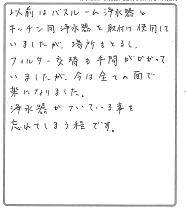 以前はバスルーム浄水器と
キッチン用浄水器を取付け使用して
いましたが、場所もとるし、
フィルター交換も手間がかかって
いましたが、今は全ての面で
楽になりました。
浄水器がついている事を
忘れてしまう程です。